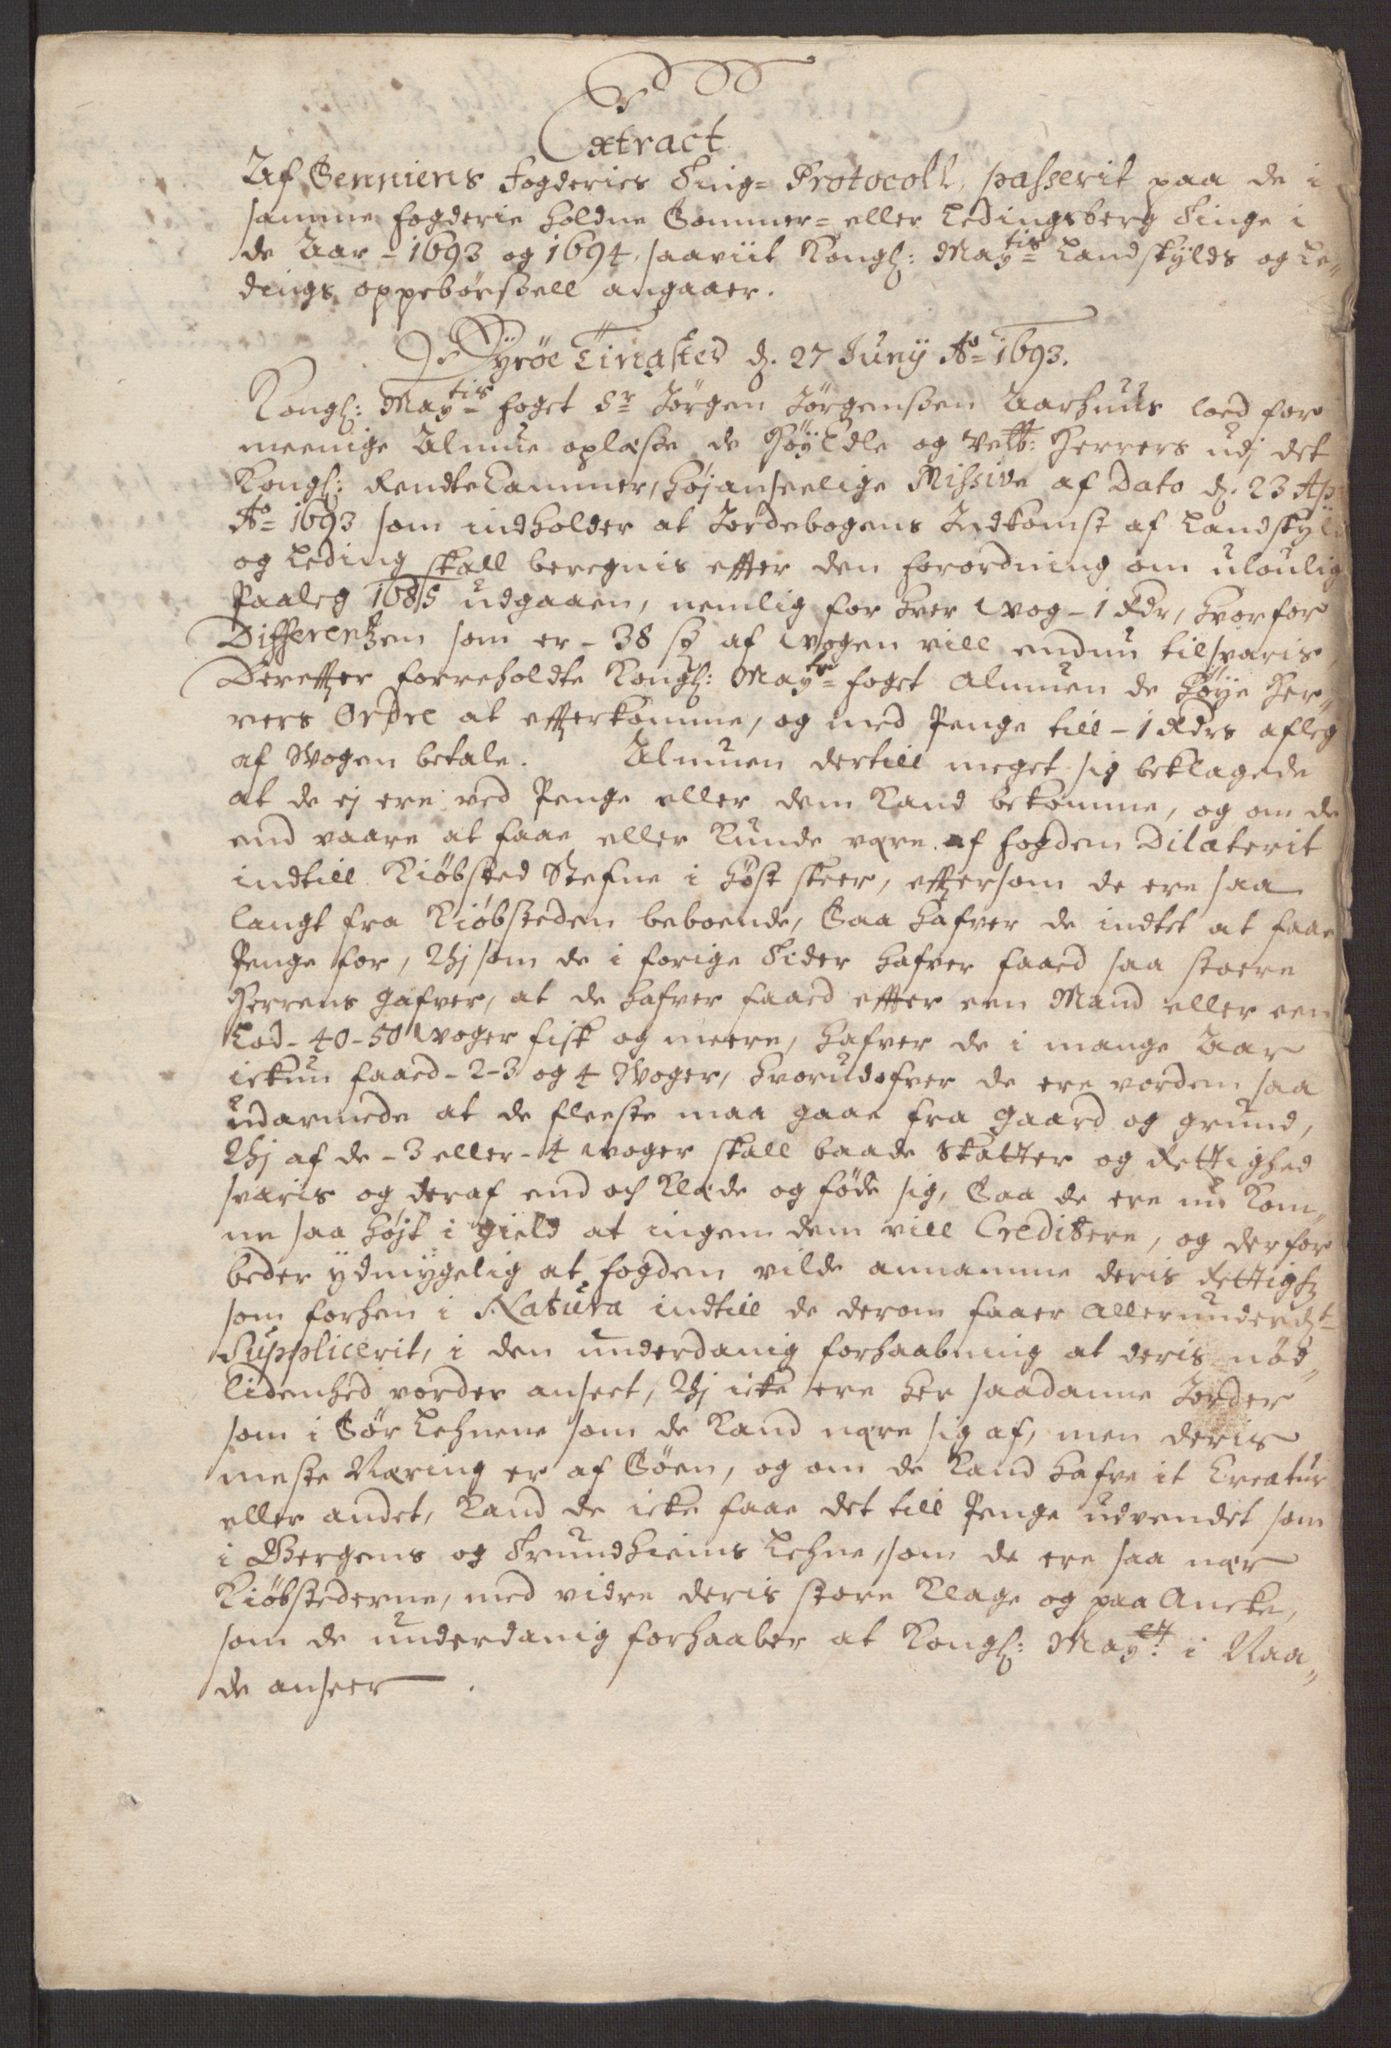 Extract
Af Senniens Fogderies Ting= Protocoll, passerit paa de i
samme fogderie holdne Sommer= eller Ledingsberg Tinge i
de Aar - 1693 og 1694, saaviit Kongl: Maytis Landskylds og Le„
dings oppebørssell angaaer.
Dyrøe Tingsted d. 27 Junij Ao 1693.
Kongl: Maytis foget Sr Jørgen Jørgenssen Aarhuus loed for
meenige Almue oplæsse de HøyEdle og Velb: Herrers udj det
Kongl: RendteCammer, høj anseelige Missive af Dato d. 23 Ap
Ao 1693 som indholder at Jordebogens Indkomst af Landskyld
og Leding skall beregnis efter den forordning om uloulig
Paaleg 1685 udgaaen, nemlig for hver Wog - 1 Rdr, hvorfor
Differentzen som er - 38 sz af Wogen vill endnu tilsvaris,
Derefter forreholdte Kongl: Mayts foget Almuen de høÿe Her„
rers Ordre at efterkomme, og med Penge till - 1 Rdrs afleg
af Wogen betale. Almuen dertill meget sig beklagede
at de ej ere ved Penge eller dem Kand bekomme, og om de
end vaare at faae eller Kunde være af fogden Dilaterit
indtill Kiøbsted Stefne i høst skeer, eftersom de ere saa
langt fra Kiøbsteden beboende, Saa hafver de indtet at faae
Penge for, Thj som de i forige Tider hafver faaed saa stoere
Herrens gafver, at de hafver faaed efter een Mand eller een
Lod - 40 - 50 Woger fisk og meere, hafver de i mange Aar
ickun faaed - 2 - 3 og 4 Woger, hvorudofver de ere vorden saa
udarmede at de fleeste maa gaae fra gaard og grund,
Thj af de - 3 eller - 4 woger skall baade Skatter og Rettighed
svaris og deraf end och Klæde og føde sig, Saa de ere nu Kom„
ne saa højt i gield at ingen dem vill Creditere, og derfor
beder ydmygelig at fogden vilde annamme deris Rettigh
som forhen i Natura indtill de derom faaer allerunderdt
Supplicerit, i den underdanig forhaabning at deris nød„
lidenhed vorder anseet, Thj icke ere her saadanne Jorder
som i Sør Lehnene som de Kand nære sig af, men deris
meste Næring er af Søen, og om de Kand hafve it Creatur
eller andet, Kand de icke faae det till Penge udvendet som
i Bergens og Trundhiems Lehne, som de ere saa nær
Kiøbstederne, med vidre deris store Klage og paa Ancke,
som de underdanig forhaaber at Kongl: Mayett i Naa„
de anseer.